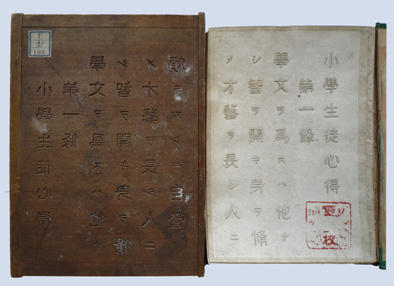 小學生徒心得
第一條
學文ヲ爲スハ他ナ
シ智ヲ開キ身ヲ脩
メ才藝ヲ長シ人ニ
小學生徒心得
第一條
學文ヲ爲スハ他ナ
シ智ヲ開キ身ヲ脩
メ才藝ヲ長シ人ニ